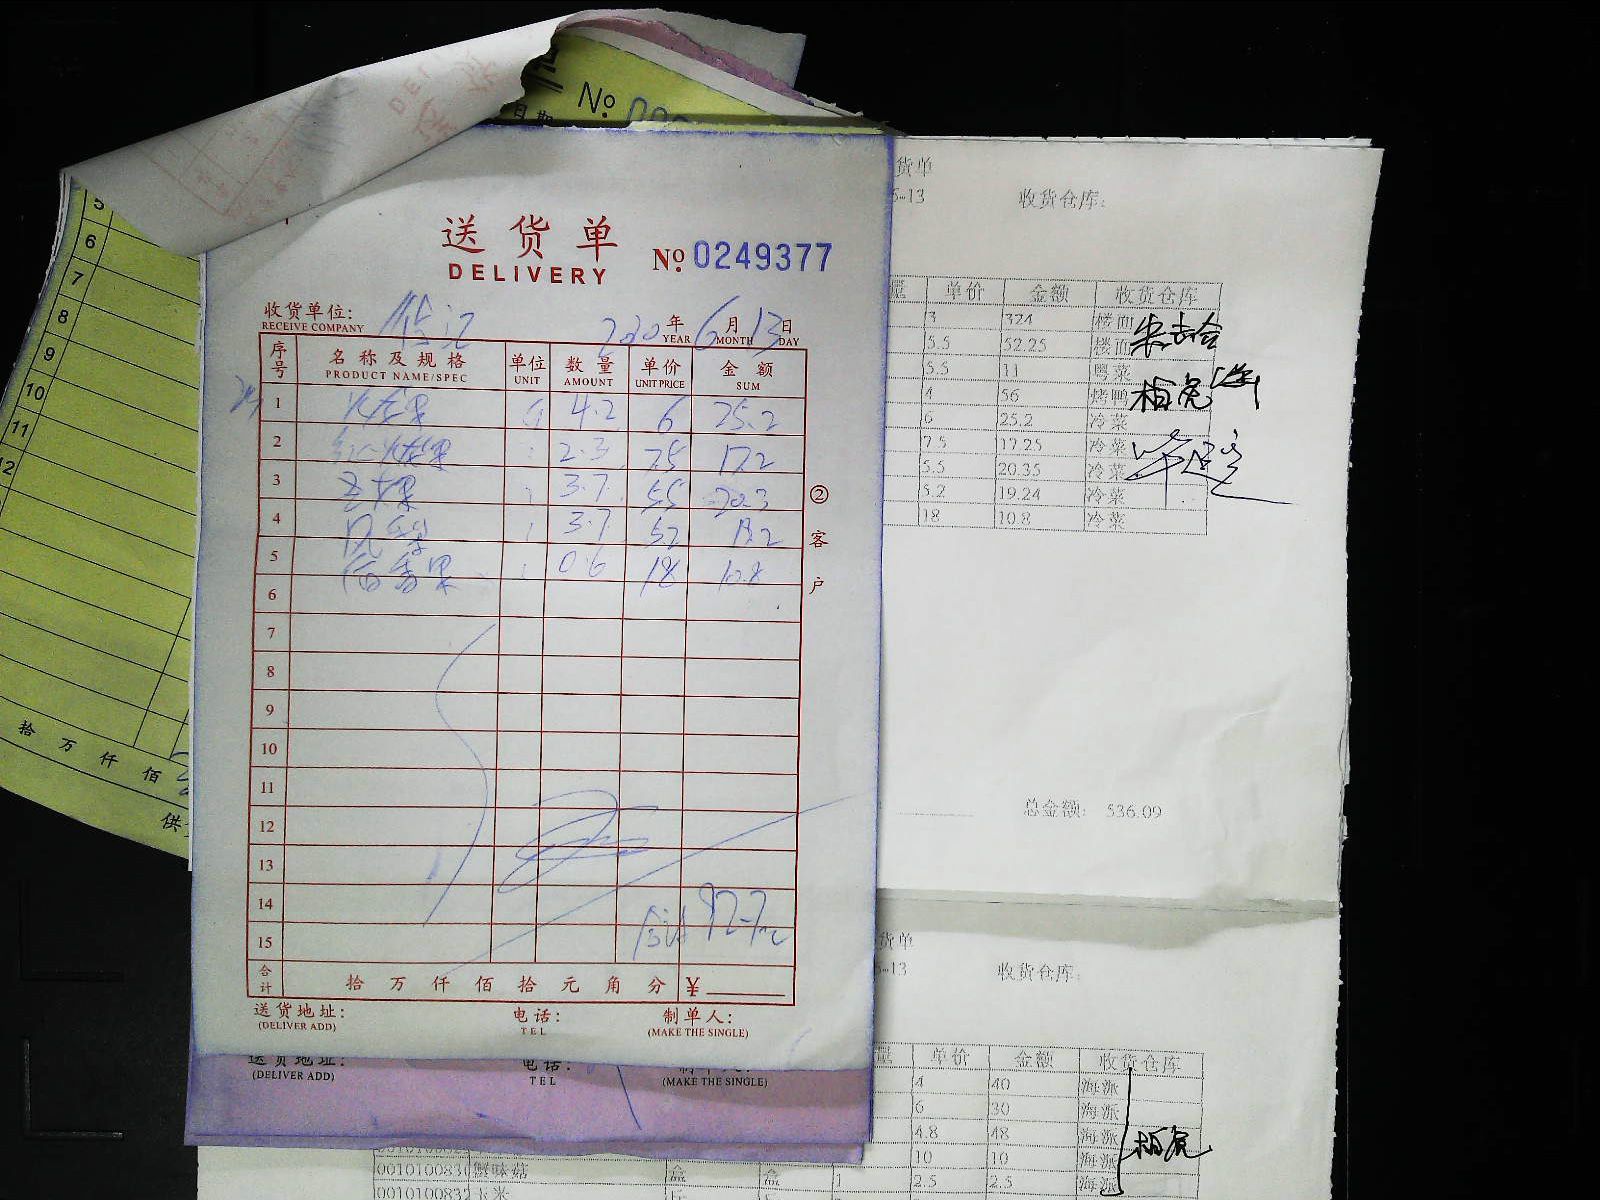 No
日期
5
6
7
8
9
10
11
12
拾 万 仟 佰
供
送货单
DELIVERY
No 0249377
收货单位:
RECEIVE COMPANY
年 6 月 13 日
YEAR MONTH DAY
序号 名称及规格 单位 数量 单价 金额
PRODUCT NAME/SPEC UNIT AMOUNT UNIT PRICE SUM
1 火龙果 4.2 6 25.2
2 红心火龙果 2.3 7.5 17.2
3 3.7 5.5 20.3
4 凤梨 3.7 5.2 19.2
5 百香果 0.6 18 10.8
6
7
8
9
10
11
12
13
14
15
合计 92.7
合计 拾 万 仟 佰 拾 元 角 分 ¥
② 客户
送货地址: 电话: 制单人:
(DELIVER ADD) TEL (MAKE THE SINGLE)
送货地址: 电话:
(DELIVER ADD) TEL (MAKE THE SINGLE)
货单
-13 收货仓库:
量 单价 金额 收货仓库
3 324 楼面
5.5 52.25 楼面
5.5 11 粤菜
4 56 烤鸭
6 25.2 冷菜
7.5 17.25 冷菜
5.5 20.35 冷菜
5.2 19.24 冷菜
18 10.8 冷菜
总金额: 536.09
货单
-13 收货仓库:
量 单价 金额 收货仓库
4 40 海派
6 30 海派
4.8 48 海派
10 10 海派
0010100830 蟹味菇 盒 盒 1 2.5 2.5 海派
0010100832 玉米